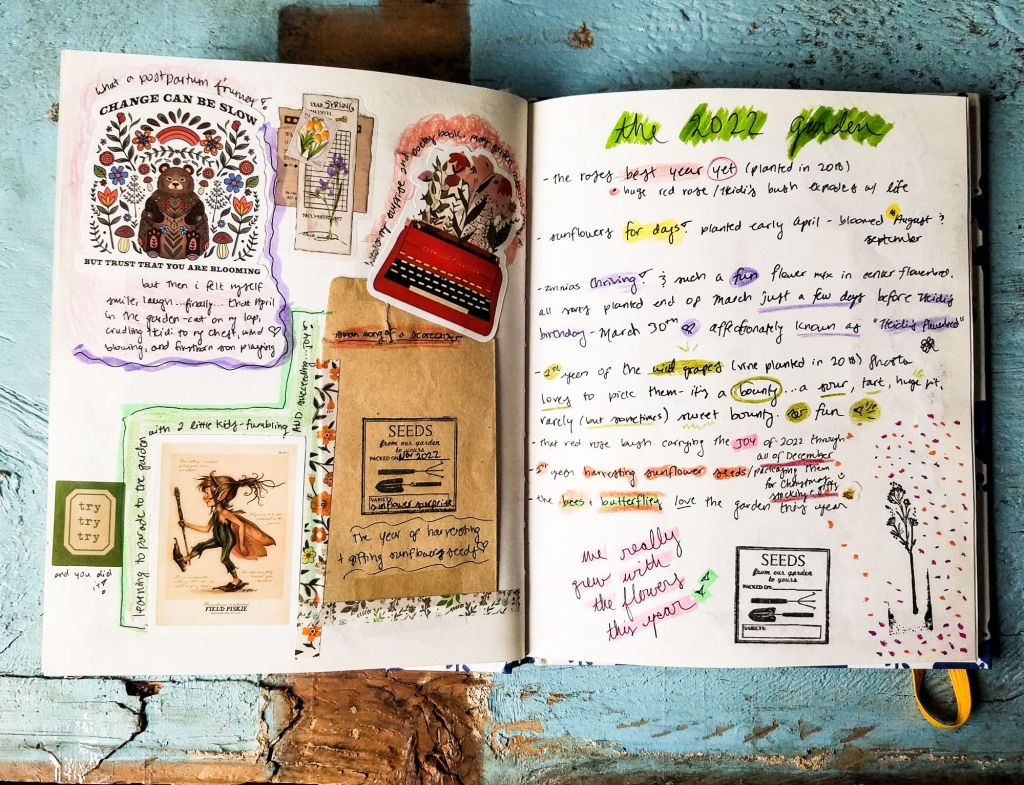 what a postpartum journey!
CHANGE CAN BE SLOW
BUT TRUST THAT YOU ARE BLOOMING
but then i felt myself
smile, laugh...finally... that April
in the garden-cat on my lap,
cradling Heidi to my chest, wind
blowing, and firstborn son playing
learning to parade to the garden
with 2 little kids-fumbling
AND succeeding...JOY!
try
try
try
and you did
it!
FIELD PISKIE
YEAR SPRING
MONTH
surprise and poetry book,
song of a
SEEDS
from our garden
to yours
PACKED ON: NOV 2022
VARIETY:
sunflower surprise
The year of harvesting
+ gifting sunflower seeds
the 2022 garden
- the roses best year yet (planted in 2018)
huge red rose/Heidi's bush explodes w/ life
- sunflowers for days! planted early April - bloomed August &
september
- zinnias thriving! & such a fun flower mix in center flowerbed,
all planted end of March just a few days before Heidi's
birthday - March 30th affectionately known as "Heidi's flowerbed"
- 1st year of the wild grapes (vine planted in 2018)
loves to pick them - it's a bounty...a sour, tart, huge pit,
rarely (but sometimes) sweet bounty. so fun
- that red rose bush carrying the JOY of 2022 through
all of December
- 1st year harvesting sunflower seeds/packaging them
for Christmas
stocking gifts
- the bees + butterflies love the garden this year
we really
grew with
the flowers
this year
SEEDS
from our garden
to yours
PACKED ON:
VARIETY: